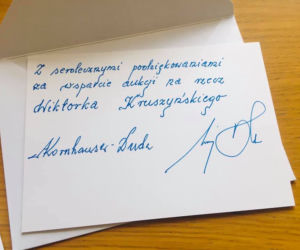 Z serdecznymi podziękowaniami
za wsparcie aukcji na rzecz
Wiktorka Kruszyńskiego
AKornhauser-Duda